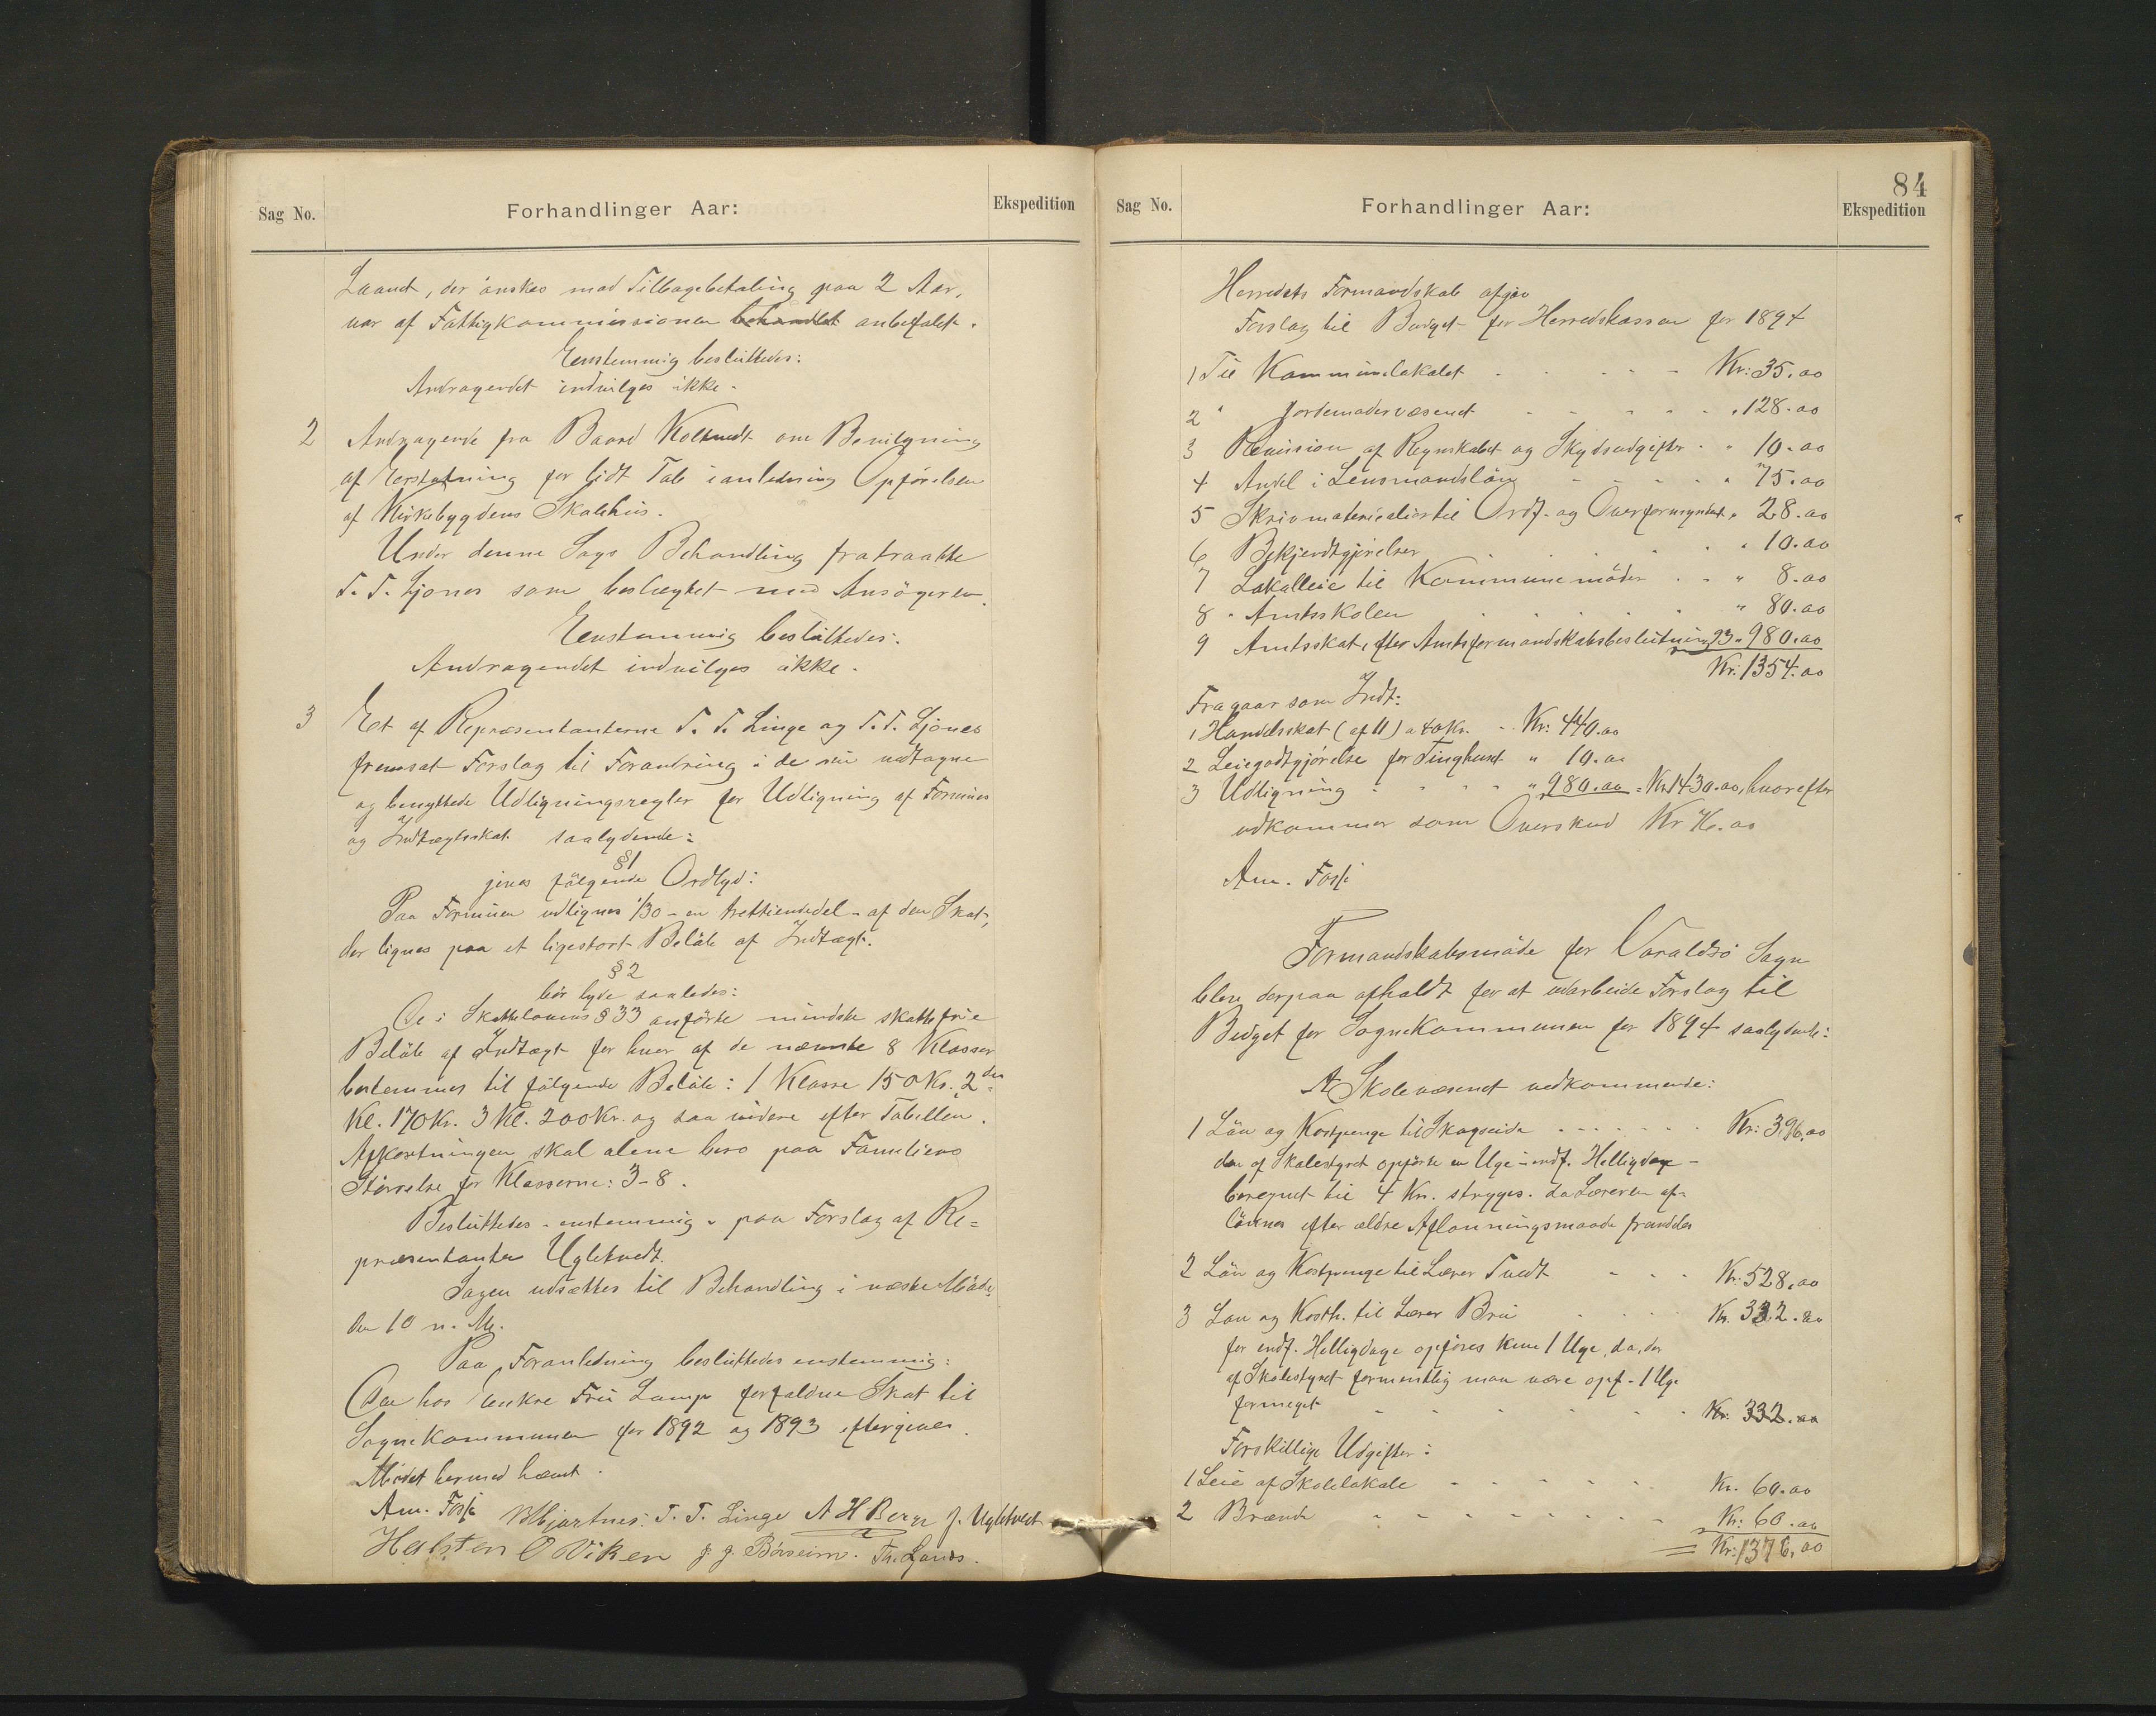 Sag No.
Forhandlinger Aar:
Ekspedition
Laanet, der ønskes mod Tilbagebetaling paa 2 Aar,
var af Fattigkommissionen behandlet anbefalet.
Eenstemmig besluttedes:
Andragendet indvilges ikke.
2 Andragende fra Baard Koltvedt om Bevilgning
af Erstatning for lidt Tab i anledning Opførelsen
af Kirkebygdens Skolehus.
Under denne Sags Behandling fratraadte
T. T. Ljones som beslægtet med Ansøgeren.
Eenstemmig besluttedes:
Andragendet indvilges ikke.
3 Et af Repræsentanterne T. T. Linge og T. T. Ljones
fremsat Forslag til Forandring i de nu vedtagne
og benyttede Udligningsregler for Udligning af Formues
og Indtægtsskat saalydende:
§ 1
gives følgende Ordlyd:
Paa Formuen udlignes 1/30 - en trettiendedel - af den Skat,
der lignes paa et ligestort Beløb af Indtægt.
§ 2
bør lyde saaledes:
De i Skattelovens § 33 anførte mindste skattefrie
Beløb af Indtægt for hver af de nævnte 8 Klasser
bestemmes til følgende Beløb: 1 Klasse 150 Kr. 2den
Kl. 170 Kr. 3 Kl. 200 Kr. og saa videre efter Tabellen.
Afkortningen skal alene bero paa Familiens
Størrelse for Klasserne: 3-8.
Besluttedes - enstemmig - paa Forslag af Re=
præsentanten Ugletvedt.
Sagen udsættes til Behandling i næste Møde,
den 10 n. M.
Paa Foranledning besluttedes enstemmig:
Den hos Enkefru Lamp forfaldne Skat til
Sognekommunen for 1892 og 1893 eftergives.
Mødet hermed hævet.
Am. Fosse Mhjartnes. T. T. Linge A H Berge J. Ugletvedt
Halsten O Viken J. J. Børseim. Th. Ljones.
84
Sag No.
Forhandlinger Aar:
Ekspedition
Herredets Formandskab afgav
Forslag til Budget for Herredskassen for 1894
1 Til Kommunelokalet - - - Kr: 35.00
2 " Jordemodervæsenet - - - " 128.00
3 Revision af Regnskabet og Skydsudgifter - " 10.00
4 Andel i Lensmandsløn - - - " 75.00
5 Skrivmaterialier til Ordf. og Overformynderi " 28.00
6 Bekjendtgjørelser . . . " 10.00
7 Lokalleie til Kommunemøder . - " 8.00
8 " Amtsskolen . . . " 80.00
9 Amtsskat efter Amtsformandskabsbeslutning 93 " 980.00
Kr. 1354.00
Fragaar som Indt:
1 Handelsskat (af 11) a 40 Kr. - Kr: 440.00
2 Leiegodtgjørelse for Tinghuset " 10.00
3 Udligning - - - " 980.00 = Kr 1430.00, hvorefter
udkommer som Overskud Kr 76.00
Am. Fosse
Formandskabsmøde for Varaldsø Sogn
blev derpaa afholdt for at udarbeide Forslag til
Budget for Sognekommunen for 1894 saalydende:
A Skolevæsenet vedkommende:
1 Løn og Kostpenge til Skogseide - - - Kr: 396,00
den af Skolestyret opførte en Uge - indf. Helligdage -
beregnet til 4 Kr. stryges. da Læreren af-
lønnes efter ældre Aflønningsmaade fremdeles
2 Løn og Kostpenge til Lærer Tvedt - - - Kr. 528,00
3 Løn og Kosth. til Lærer Bru . . . Kr. 332.00
for indf. Helligdage opføres kun 1 Uge, da der
af Skolestyret formentlig maa være opf. 1 Uge
formeget - - - Kr. 332.00
Forskillige Udgifter:
1 Leie af Skolelokale - - - Kr. 60.00
2 Brænde - - - Kr: 60.00
= Kr: 1376,00